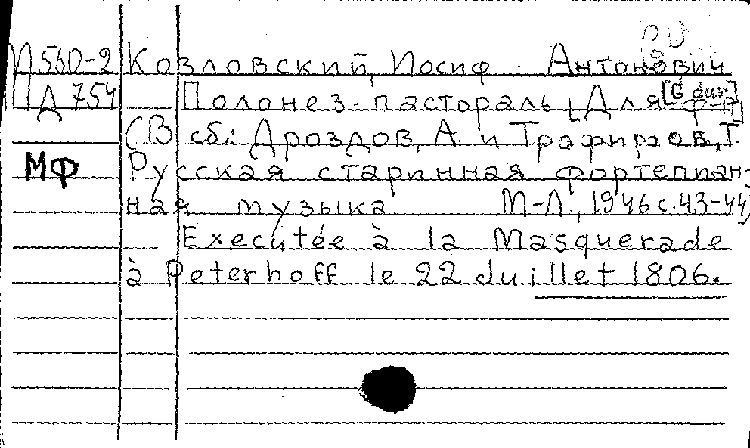 П530-2 Козловский, Иосиф Антонович
Д 754 Полонез-пастораль [G dur] Для ф-п
(В сб.: Дроздов, А и Трофимов, Т.
МФ Русская старинная фортепиан-
ная музыка М-Л, 1946 с.43-44)
Executée à la Masquerade
à Peterhoff le 22 Juillet 1806.